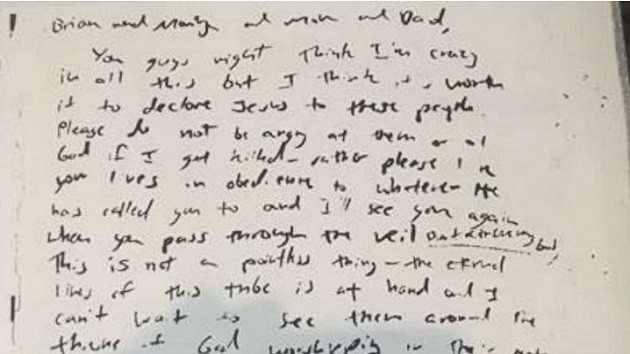 Brian and Mary and Mom and Dad,
You guys might think I'm crazy
in all this but I think it's worth
it to declare Jesus to these people.
Please do not be angry at them or at
God if I get killed - rather please live
your lives in obedience to whatever He
has called you to and I'll see you again
when you pass through the veil
This is not a pointless thing - the eternal
lives of this tribe is at hand and I
can't wait to see them around the
throne of God worshipping in their